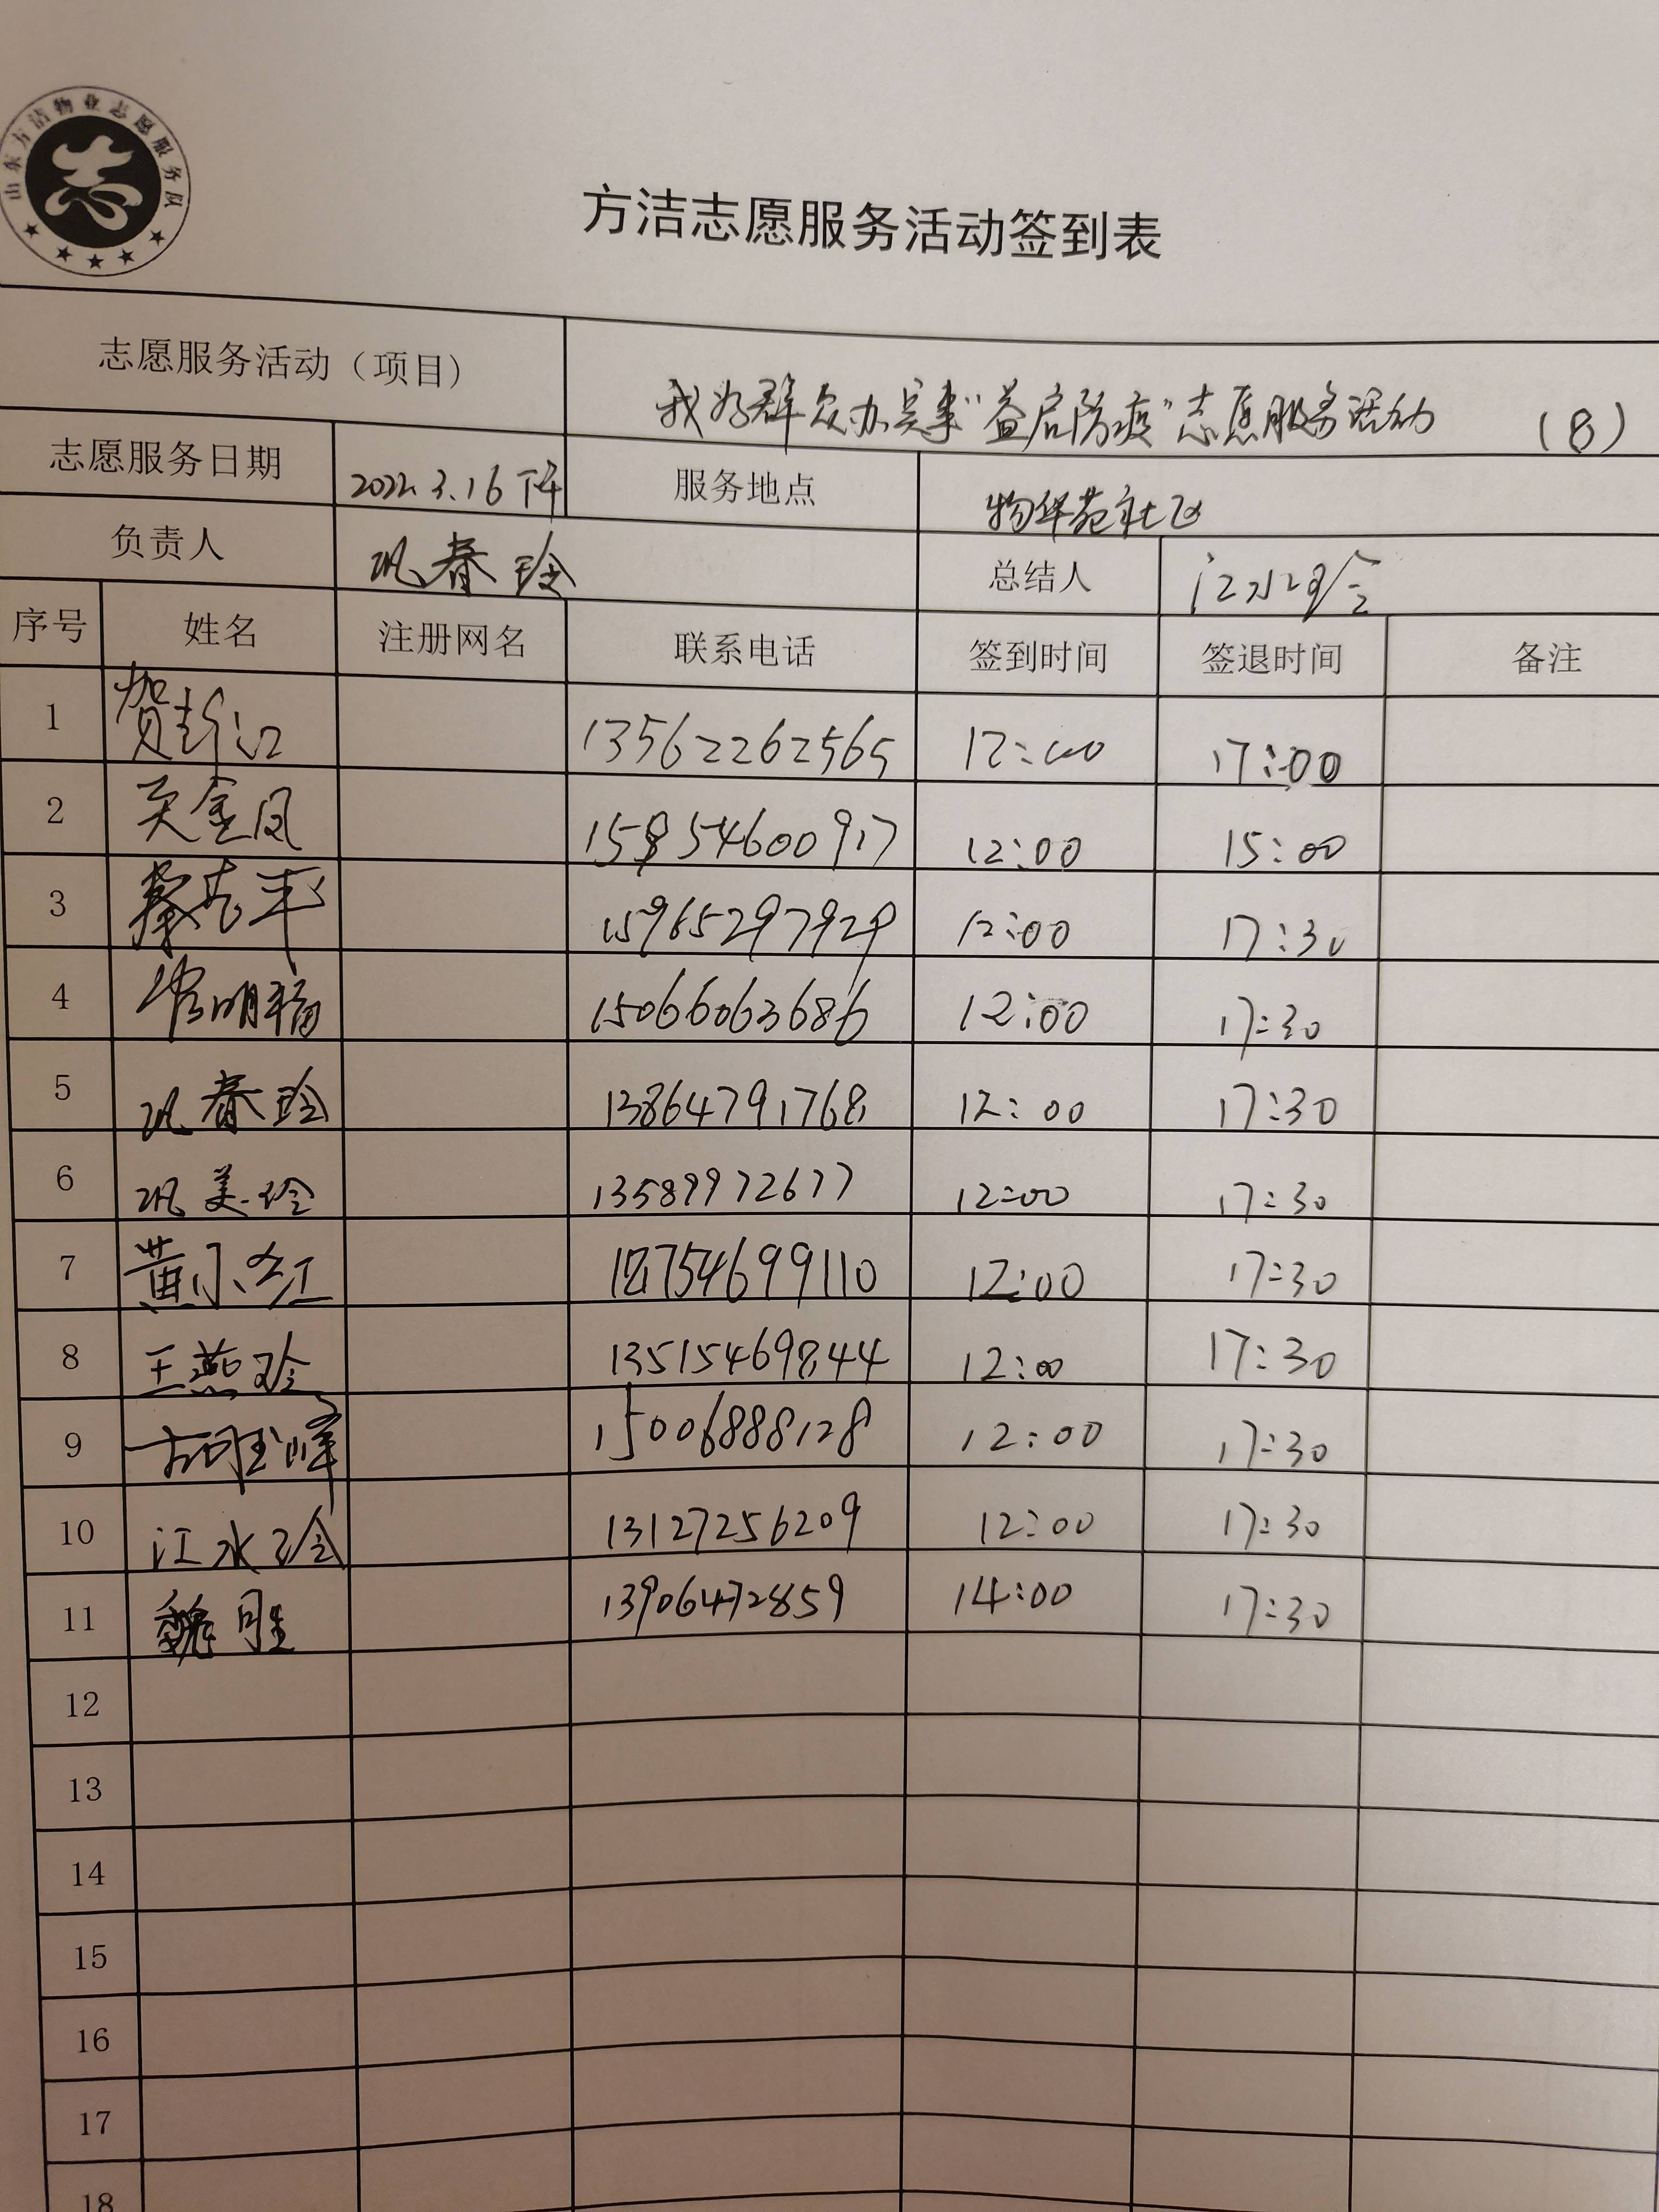 山东方洁物业志愿服务队
志
方洁志愿服务活动签到表
志愿服务活动（项目） 我为群众办实事"益启防疫"志愿服务活动 （8）
志愿服务日期 2022.3.16下午 服务地点 物华苑社区
负责人 巩春玲 总结人 江水玲
序号 姓名 注册网名 联系电话 签到时间 签退时间 备注
1 贺 江 13562262565 12:00 17:00
2 金凤 15854600917 12:00 15:00
3 15965297929 12:00 17:30
4 明福 15066063686 12:00 17:30
5 巩春玲 13864791768 12:00 17:30
6 巩美玲 13589972677 12:00 17:30
7 黄小红 18754699110 12:00 17:30
8 王燕玲 13515469844 12:00 17:30
9 胡玉峰 15006888128 12:00 17:30
10 江水玲 13127256209 12:00 17:30
11 魏胜 13906472859 14:00 17:30
12
13
14
15
16
17
18